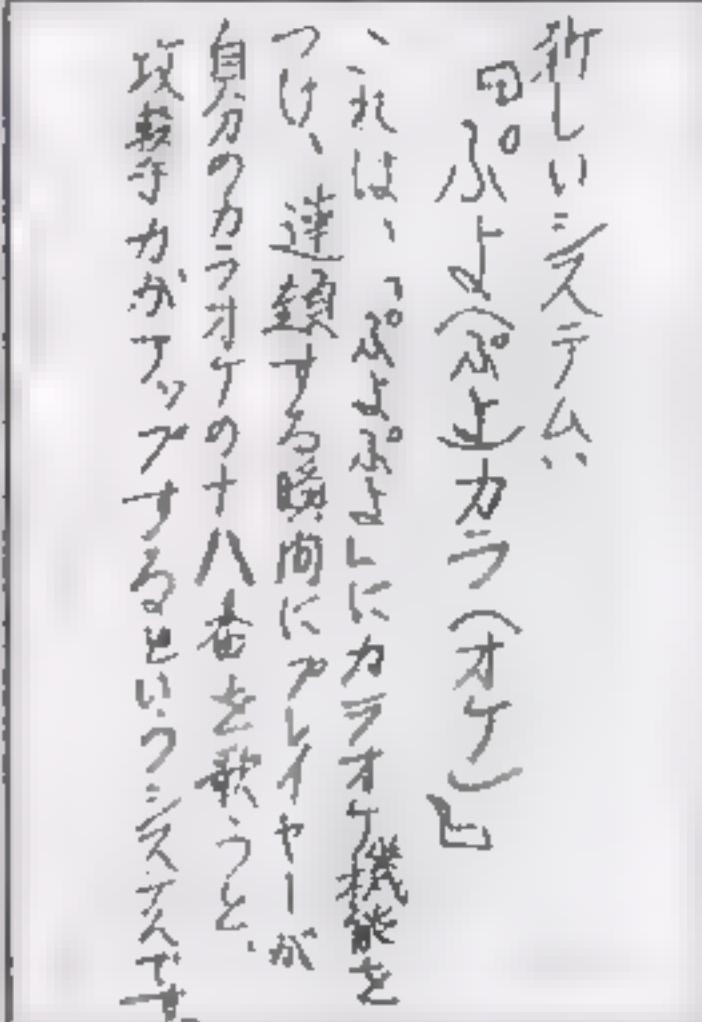 新しいシステム:
『ぷよ(ぷよ)カラ(オケ)』
これは、「ぷよぷよ」にカラオケ機能を
つけ、連鎖する瞬間にプレイヤーが
自分のカラオケの十八番を歌うと、
攻撃力がアップするというシステムです。